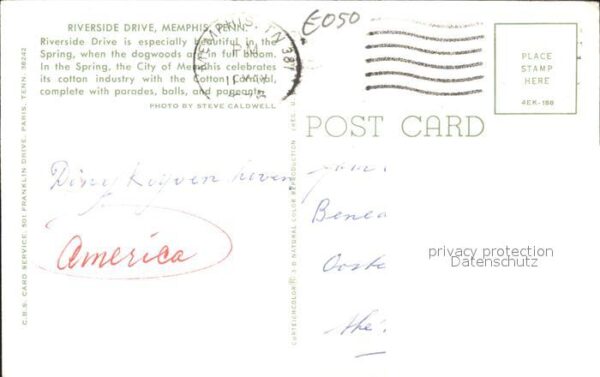 RIVERSIDE DRIVE, MEMPHIS, TENN.
Riverside Drive is especially beautiful in the
Spring, when the dogwoods are in full bloom.
In the Spring, the City of Memphis celebrates
its cotton industry with the Cotton Carnival,
complete with parades, balls, and pageants.
PHOTO BY STEVE CALDWELL
C.B.S. CARD SERVICE, 501 FRANKLIN DRIVE, PARIS, TENN. 38242
MEMPHIS, TN 38
E050
PLACE
STAMP
HERE
4EK-188
POST CARD
CURTEICHCOLOR 3-D NATURAL COLOR REPRODUCTION
America
Benea
Ooste
the
privacy protection
Datenschutz